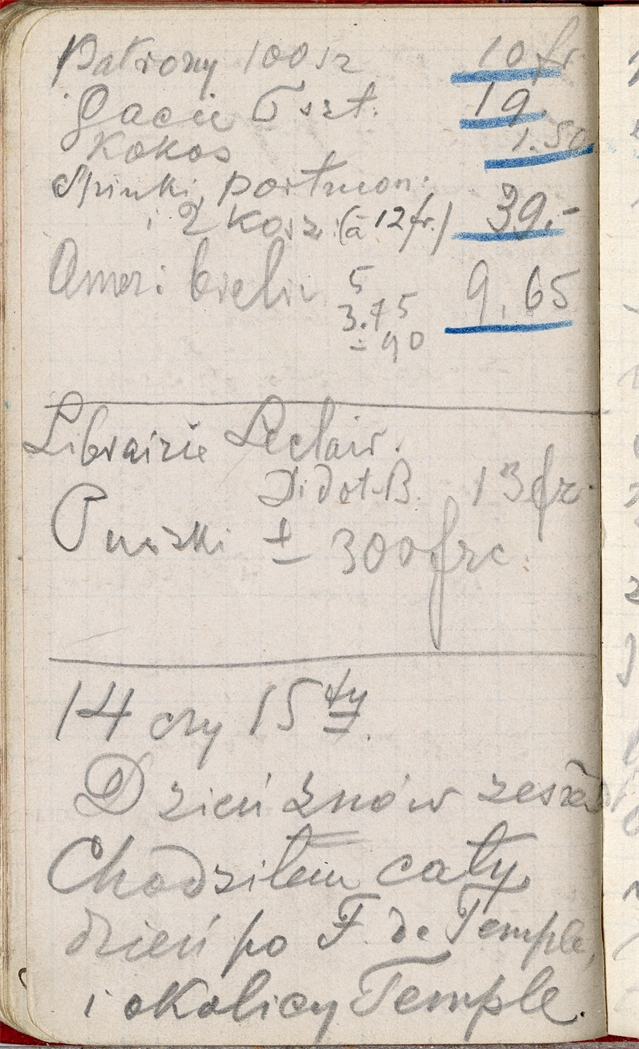 Patrony 100 sz 10 fr.
Gacie T szt. 19
Kokos 1.50
Spinki, portmon:
i 2 kosz. (à 12 fr.) 39.-
Amer: 5 9.65
3.75
- 90
Librairie Leclair.
Didot B. 13 fr.
± 300 frc.
14 czy 15ty.
Dzień znów
Chodziłem cały
dzień po F. de Temple,
i okolicy Temple.